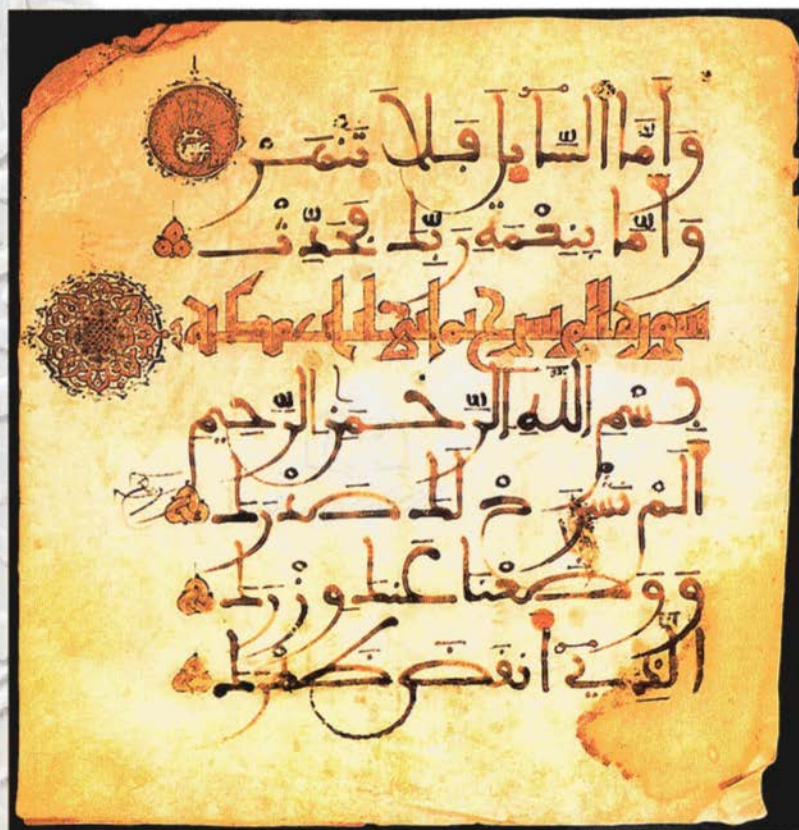 وَأَمَّا ٱلسَّآبِلَ فَلَا تَنْهَرْ
وَأَمَّا بِنِعْمَةِ رَبِّكَ فَحَدِّثْ
سورة ألم نشرح ثماني ءايات مكية
بِسْمِ ٱللَّهِ ٱلرَّحْمَٰنِ ٱلرَّحِيمِ
أَلَمْ نَشْرَحْ لَكَ صَدْرَكَ
وَوَضَعْنَا عَنكَ وِزْرَكَ
ٱلَّذِي أَنقَضَ ظَهْرَكَ